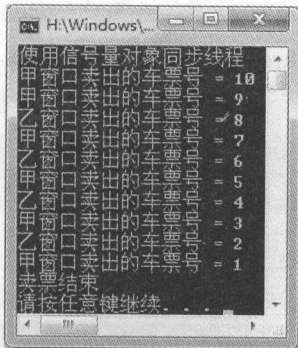 H:\Windows\...
使用信号量对象同步线程
甲窗口卖出的车票号 = 10
甲窗口卖出的车票号 = 9
乙窗口卖出的车票号 = 8
甲窗口卖出的车票号 = 7
乙窗口卖出的车票号 = 6
甲窗口卖出的车票号 = 5
乙窗口卖出的车票号 = 4
甲窗口卖出的车票号 = 3
乙窗口卖出的车票号 = 2
甲窗口卖出的车票号 = 1
卖票结束
请按任意键继续. . .